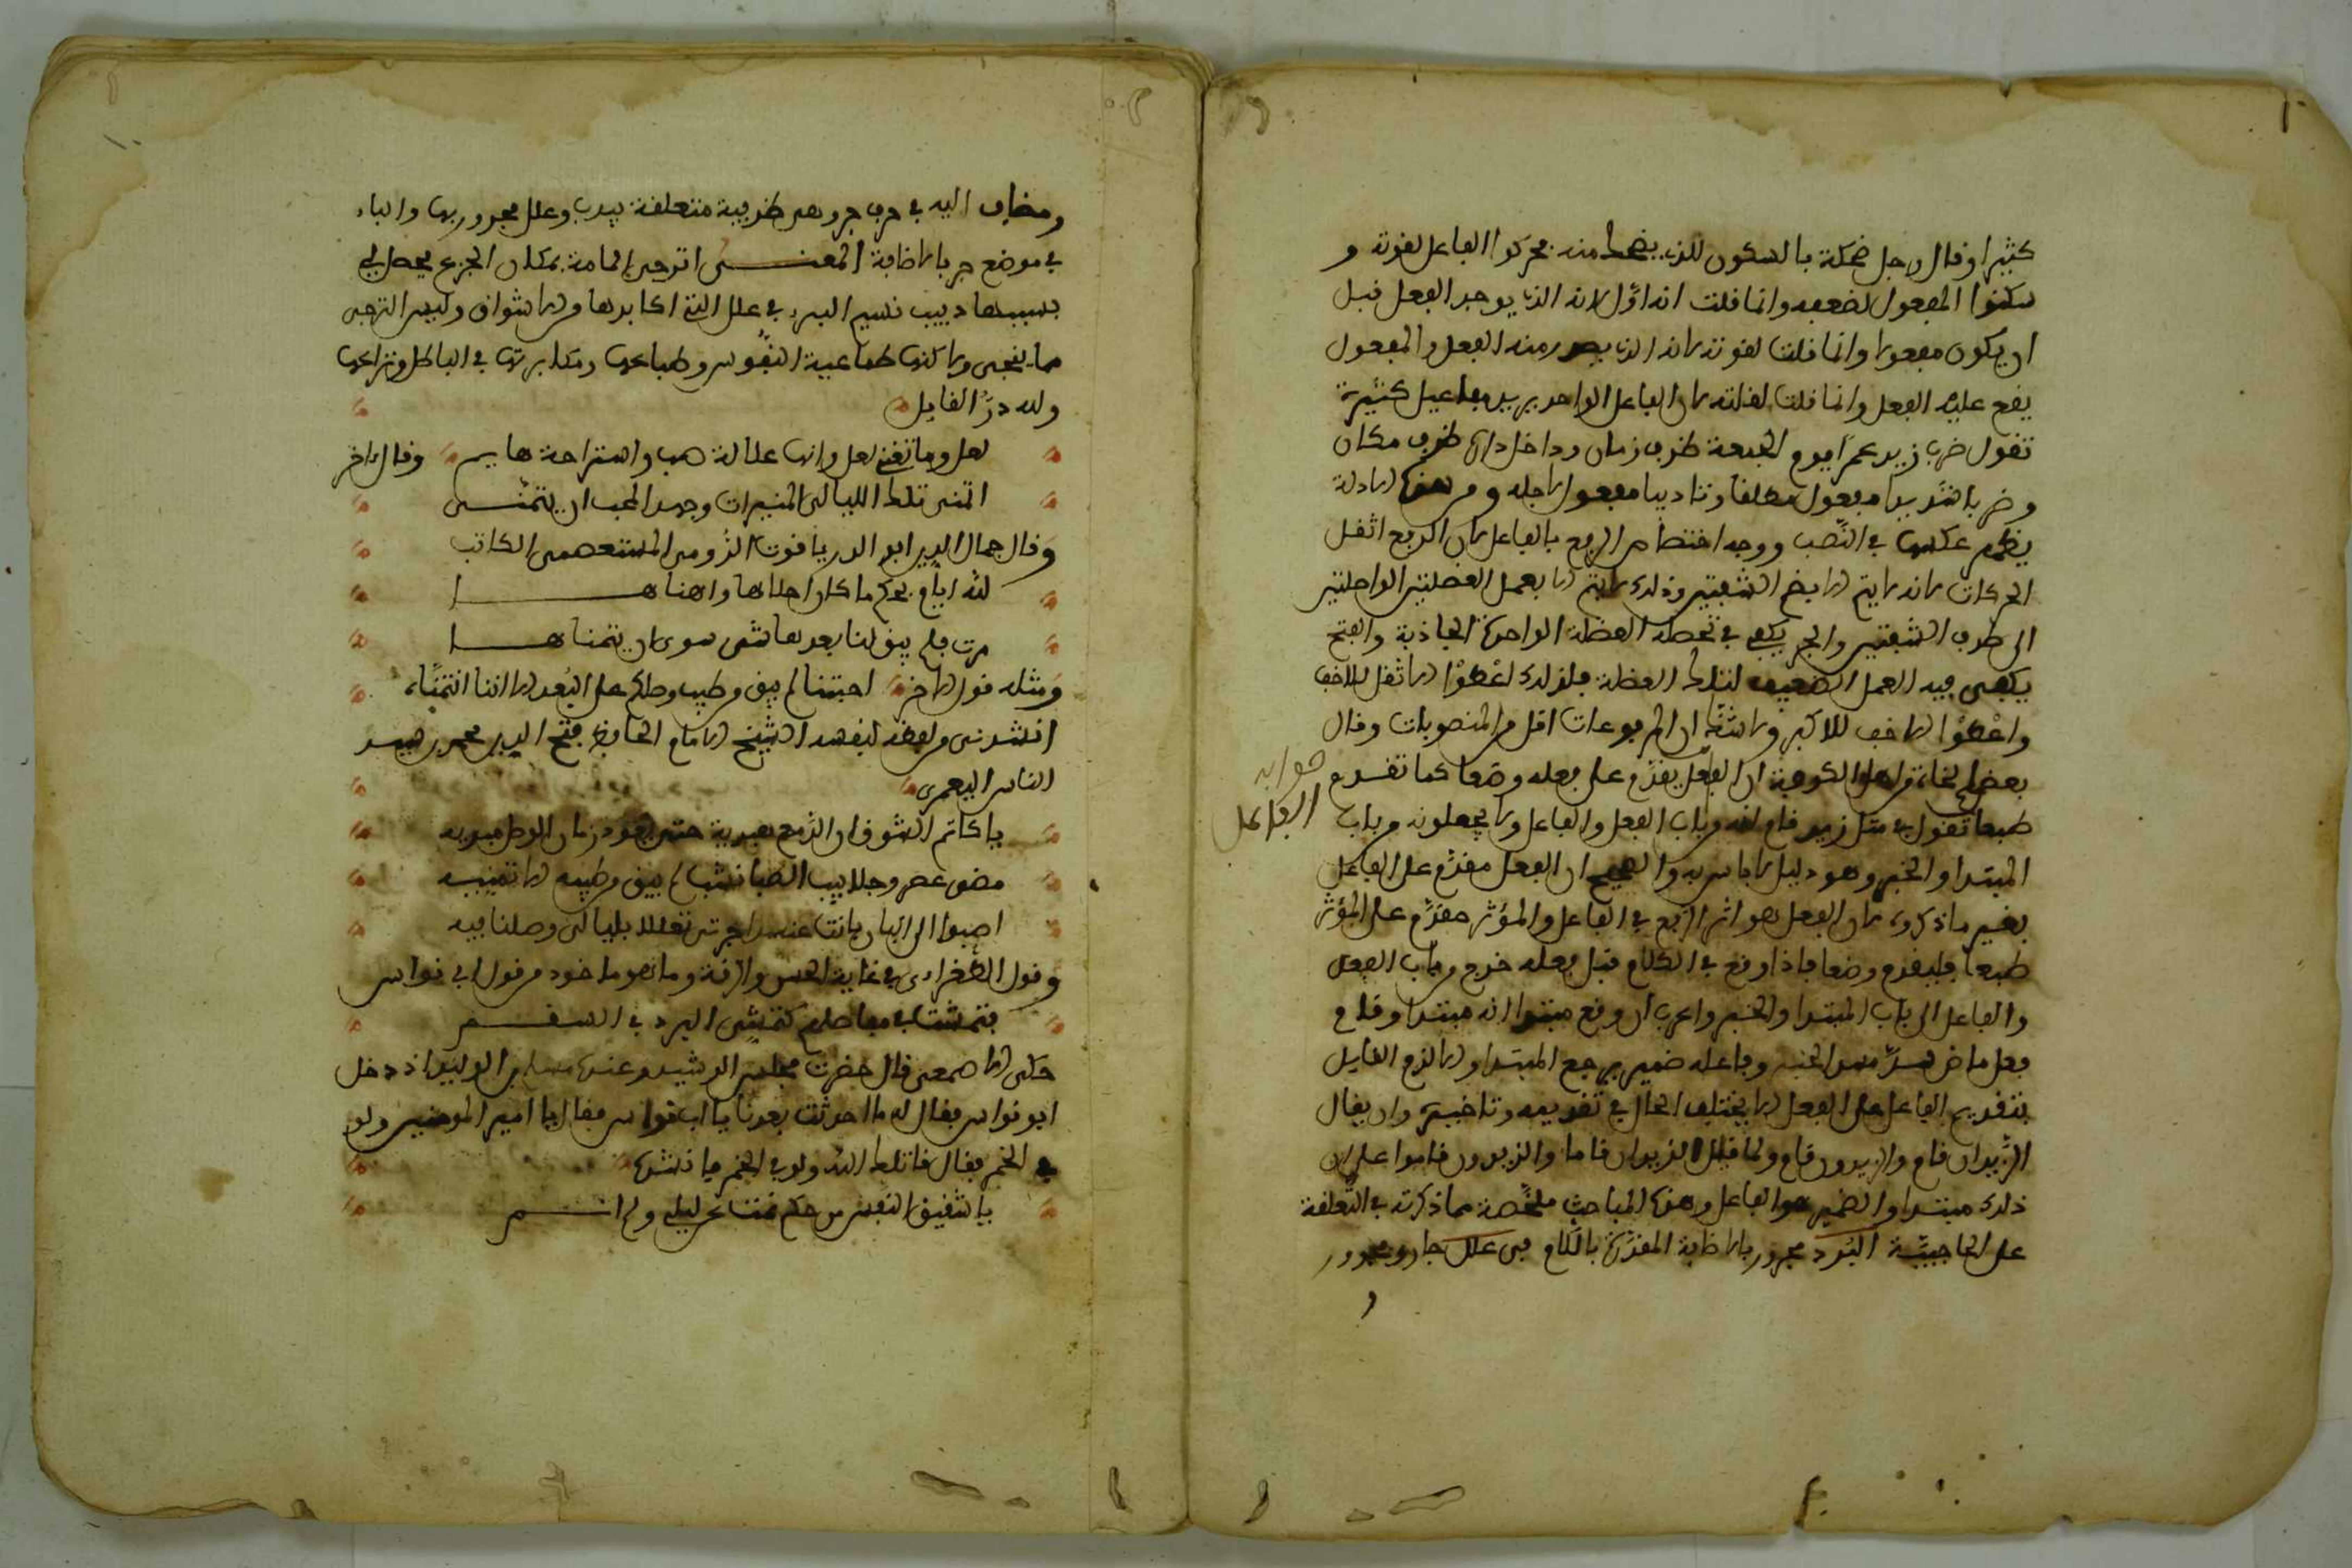 كثيرا وقال رجل ضحكة بالسكون للذي يضحك منه فحركوا الفاعل لقوته و
سكنوا المفعول لضعفه وانما قلت انه اول لانه الذي يوجد الفعل قبل
ان يكون مفعولا وانما قلت لقوته لانه الذي يصدر منه الفعل والمفعول
يقع عليه الفعل وانما قلت لقلته لان الفاعل الواحد يريد مفاعيل كثيرة
تقول ضرب زيد عمرا يوم الجمعة ظرف زمان وداخل دار ظرف مكان
وضربا شديدا مفعول مطلقا وتاديبا مفعولا لاجله ومن هذه الادلة
يظهر عكسها في النصب ووجه اختصاص الرفع بالفاعل لان الرفع اثقل
الحركات لانه لا يتم الا بضم الشفتين وذلك لا يتم الا بعمل العضلتين الواصلتين
الى طرف الشفتين والجر يكفي في تحصله العضلة الواحدة الجاذبة والفتح
يكفى فيه العمل الضعيف لتلك العضلة فلذلك اعطوا الاثقل للاخف
واعطوا الاخف للاكثر ولا شك ان المرفوعات اقل من المنصوبات وقال
بعض النحاة من اهل الكوفة ان الفعل يقدم على فعله وضعا كما تقدم
صوابه
الفاعل
طبعا تقول في مثل زيد قام انه من باب الفعل والفاعل ولا يجعلونه من باب
المبتدا والخبر وهو دليل لا باس به والصحيح ان الفعل مقدم على الفاعل
بغير ما ذكروه لان الفعل هو اثر الرفع في الفاعل والمؤثر مقدم على المؤثر
طبعا فليقدم وضعا فاذا وقع في الكلام قبل فعله خرج من باب الفعل
والفاعل الى باب المبتدا والخبر واعرب ان وقع مبتدا انه مبتدا وقام
فعل ماض سد مسد الخبر وفاعله ضمير يرجع المبتدا ولا لزم القايل
بتقديم الفاعل على الفعل الا يختلف الحال في تقديمه وتاخيره وان يقال
الزيدان قام والزيدون قام ولما قيل الزيدان قاما والزيدون قاموا على ان
ذلك مبتدا والضمير هو الفاعل وهذه المباحث ملخصة مما ذكرته في التعلقة
على الحاجبية البرد مجرور بالاضافة المقدرة باللام في علل جار ومجرور
و
ومضاف اليه في حرف جر وهى ظرفية متعلقة بيدب وعلل مجرور بها والياء
في موضع جر بالاضافة المعنى اترجى المامة بمكان الجزع يحصل لي
بسببها دبيب نسيم البرء في علل التى اكابدها من الاشواق وليس الترجى
مما ينجى ولا كنها طماعية النفوس وطباعها ومكابرتها في الباطل ونزاعها
ولله در القايل
لعل وما تغني لعل وانها علالة صب واستراحة هايم وقال اخر
اتمنى تلك الليالى المنيرات وجهد المحب ان يتمنى
وقال جمال الدين ابو الدر ياقوت الرومى المستعصمى الكاتب
لله ايام بكم ما كان احلاها واهناها
مرت فلم يبق لنا بعدها شى سوى ان يتمناها
ومثله قول الاخر احبتنا لم يبق من طيب وصلكم على البعد الا اننا نتمناه
انشدنى من لفظه لنفسه الشيخ الامام الحافظ فتح الدين محمد بن سيد
الناس اليعمرى
يا كاتم الشوق ان الدمع يبديه حتى يعود زمان الوصل مبديه
مضى عصر وجلابيب الصبا نشبا لم يبق من طيبه الا تمنيه
اصبوا الى البان بانت عنه تعللا بليالى وصلنا فيه
وقول الطغراءى في غاية الحسن والرقة وما هو ماخوذ من قول ابي نواس
فتمشت في مفاصلهم كتمشى البرء في السقم
حكى الاصمعى قال حضرت مجلس الرشيد وعنده مسلم بن الوليد اذ دخل
ابو نواس فقال له ما احدثت بعدنا يا ابا نواس فقال يا امير المومنين ولو
في الخمر فقال قاتلك الله ولو في الخمر فانشده
يا شقيق النفس من حكم نمت عن ليلي ولم انم